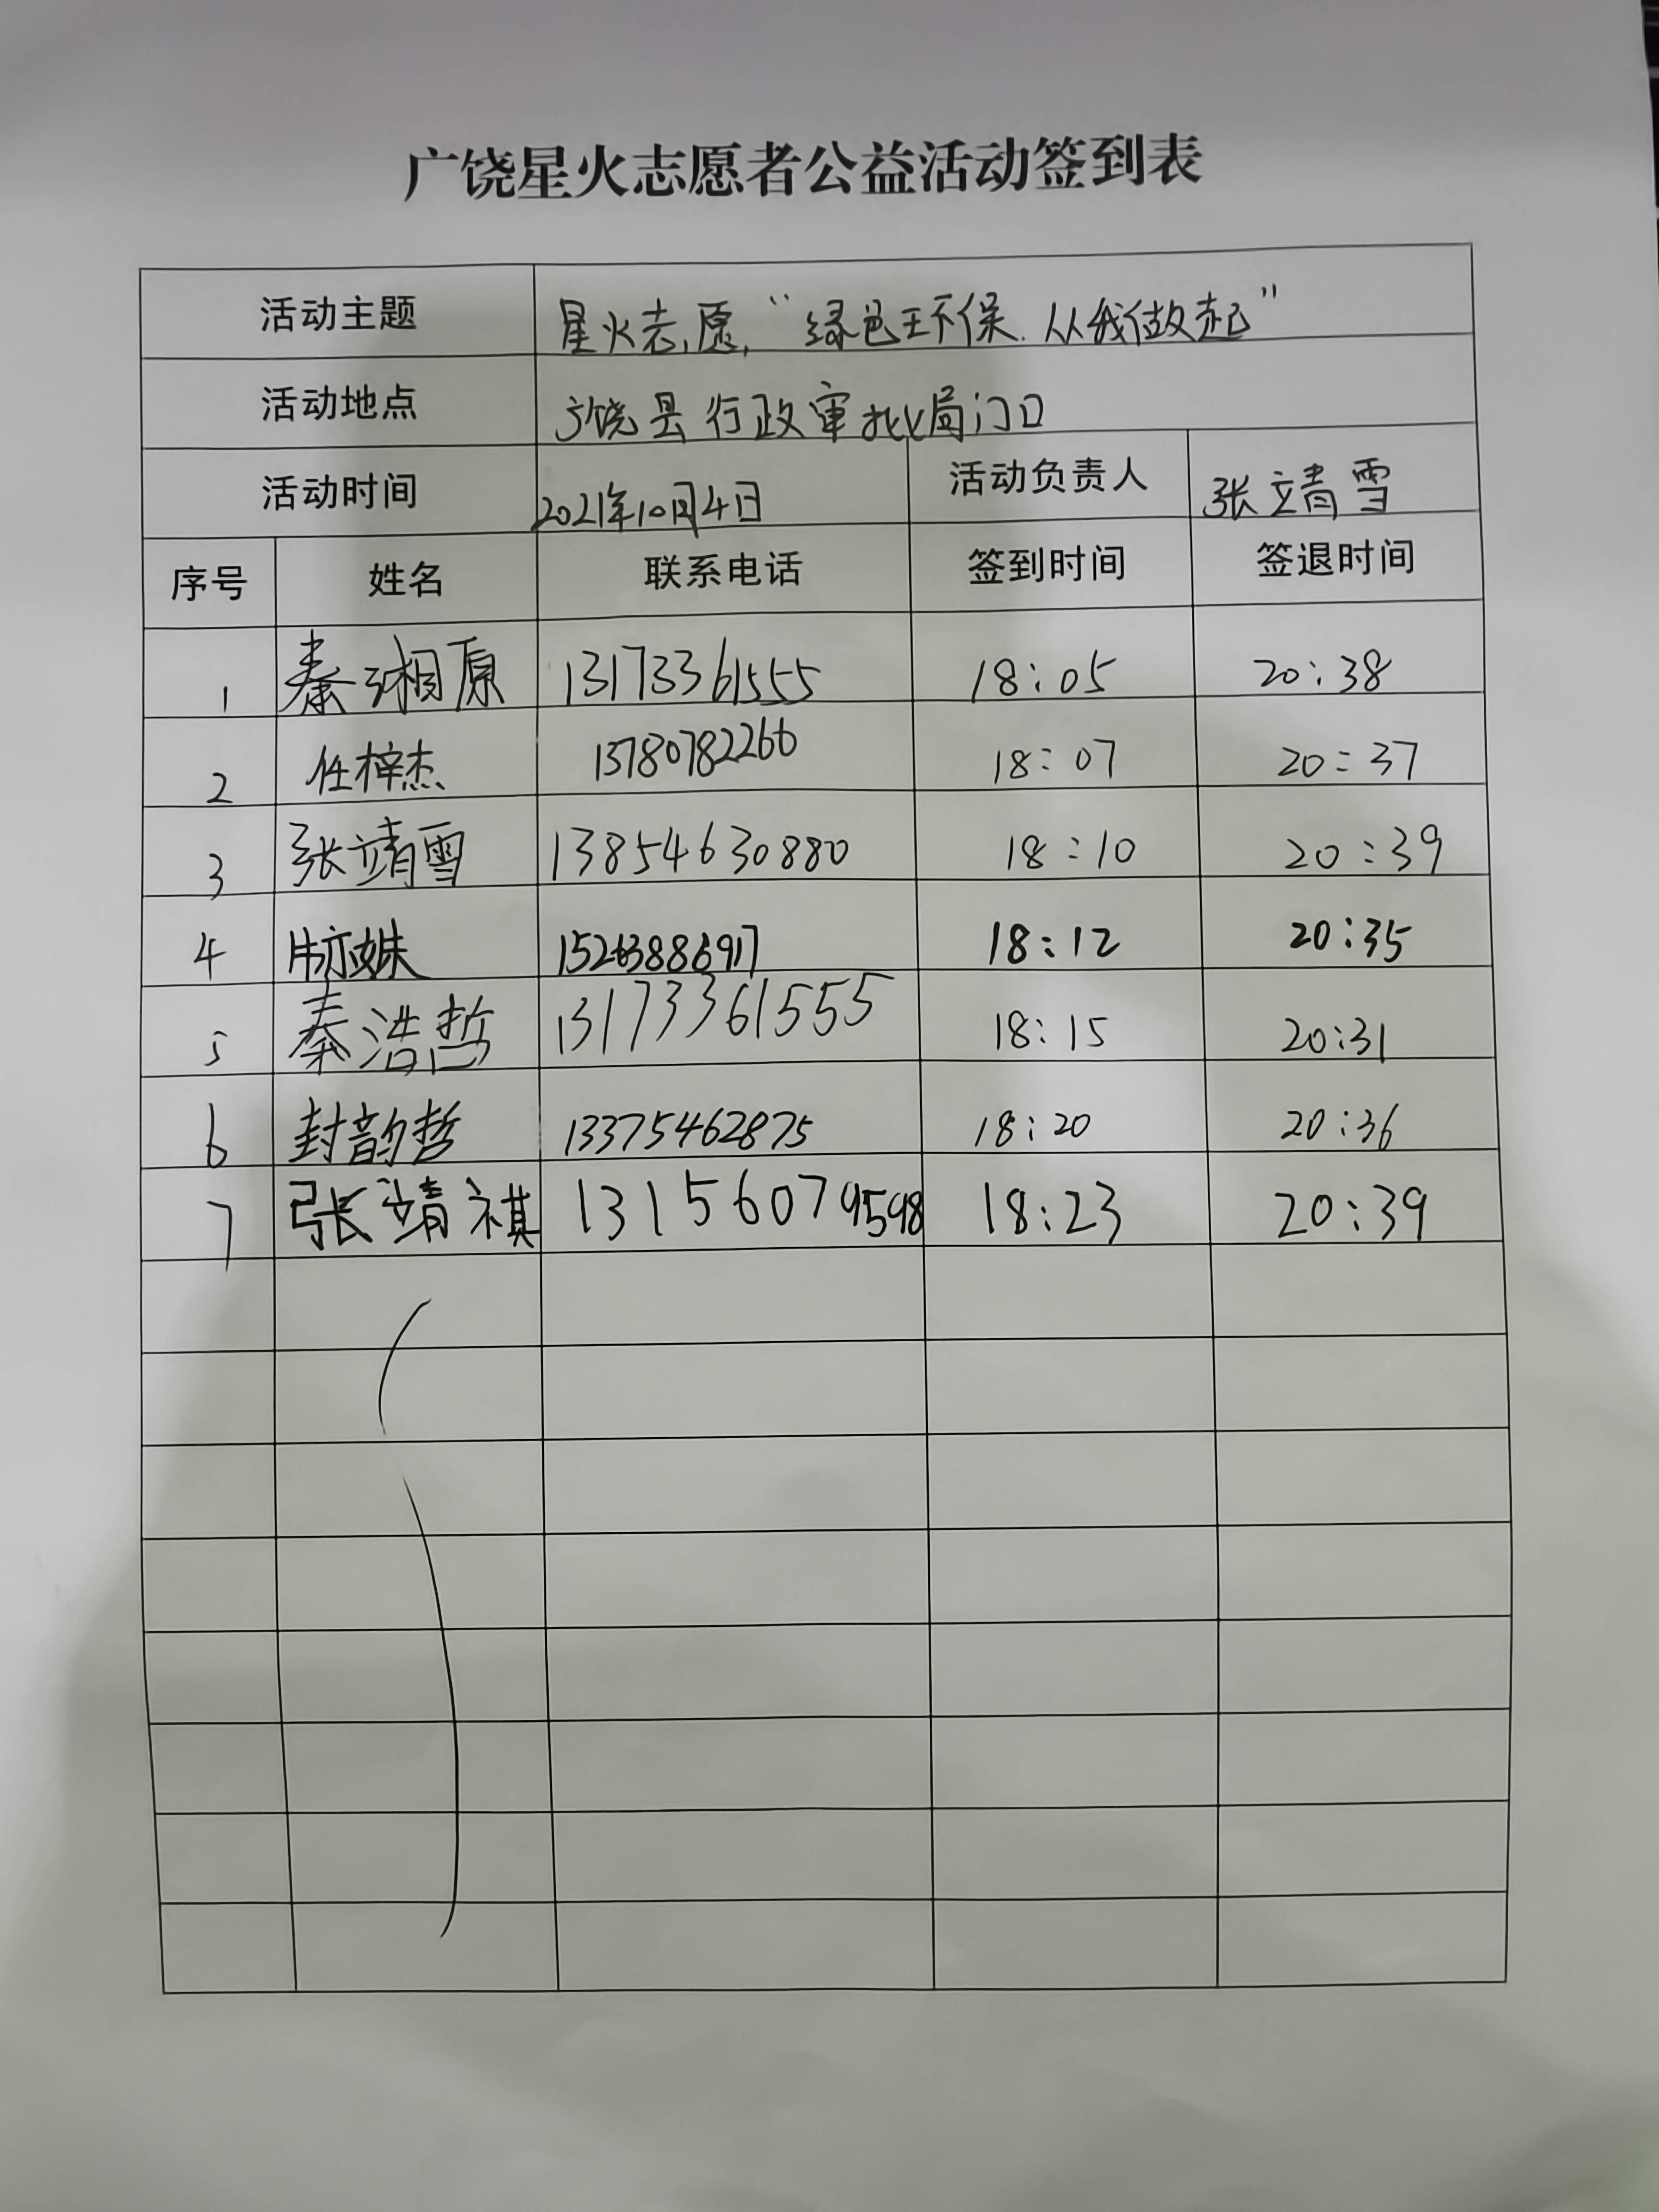 广饶星火志愿者公益活动签到表
活动主题 星火志愿，“绿色环保．从我做起”
活动地点 广饶县行政审批局门口
活动时间 2021年10月4日 活动负责人 张靖雪
序号 姓名 联系电话 签到时间 签退时间
1 秦翊原 13173361555 18:05 20:38
2 任梓杰 13780782266 18:07 20:37
3 张靖雪 13854630880 18:10 20:39
4 15263886917 18:12 20:35
5 秦浩哲 13173361555 18:15 20:31
6 封韵哲 13375462875 18:20 20:36
7 张靖祺 13156079598 18:23 20:39